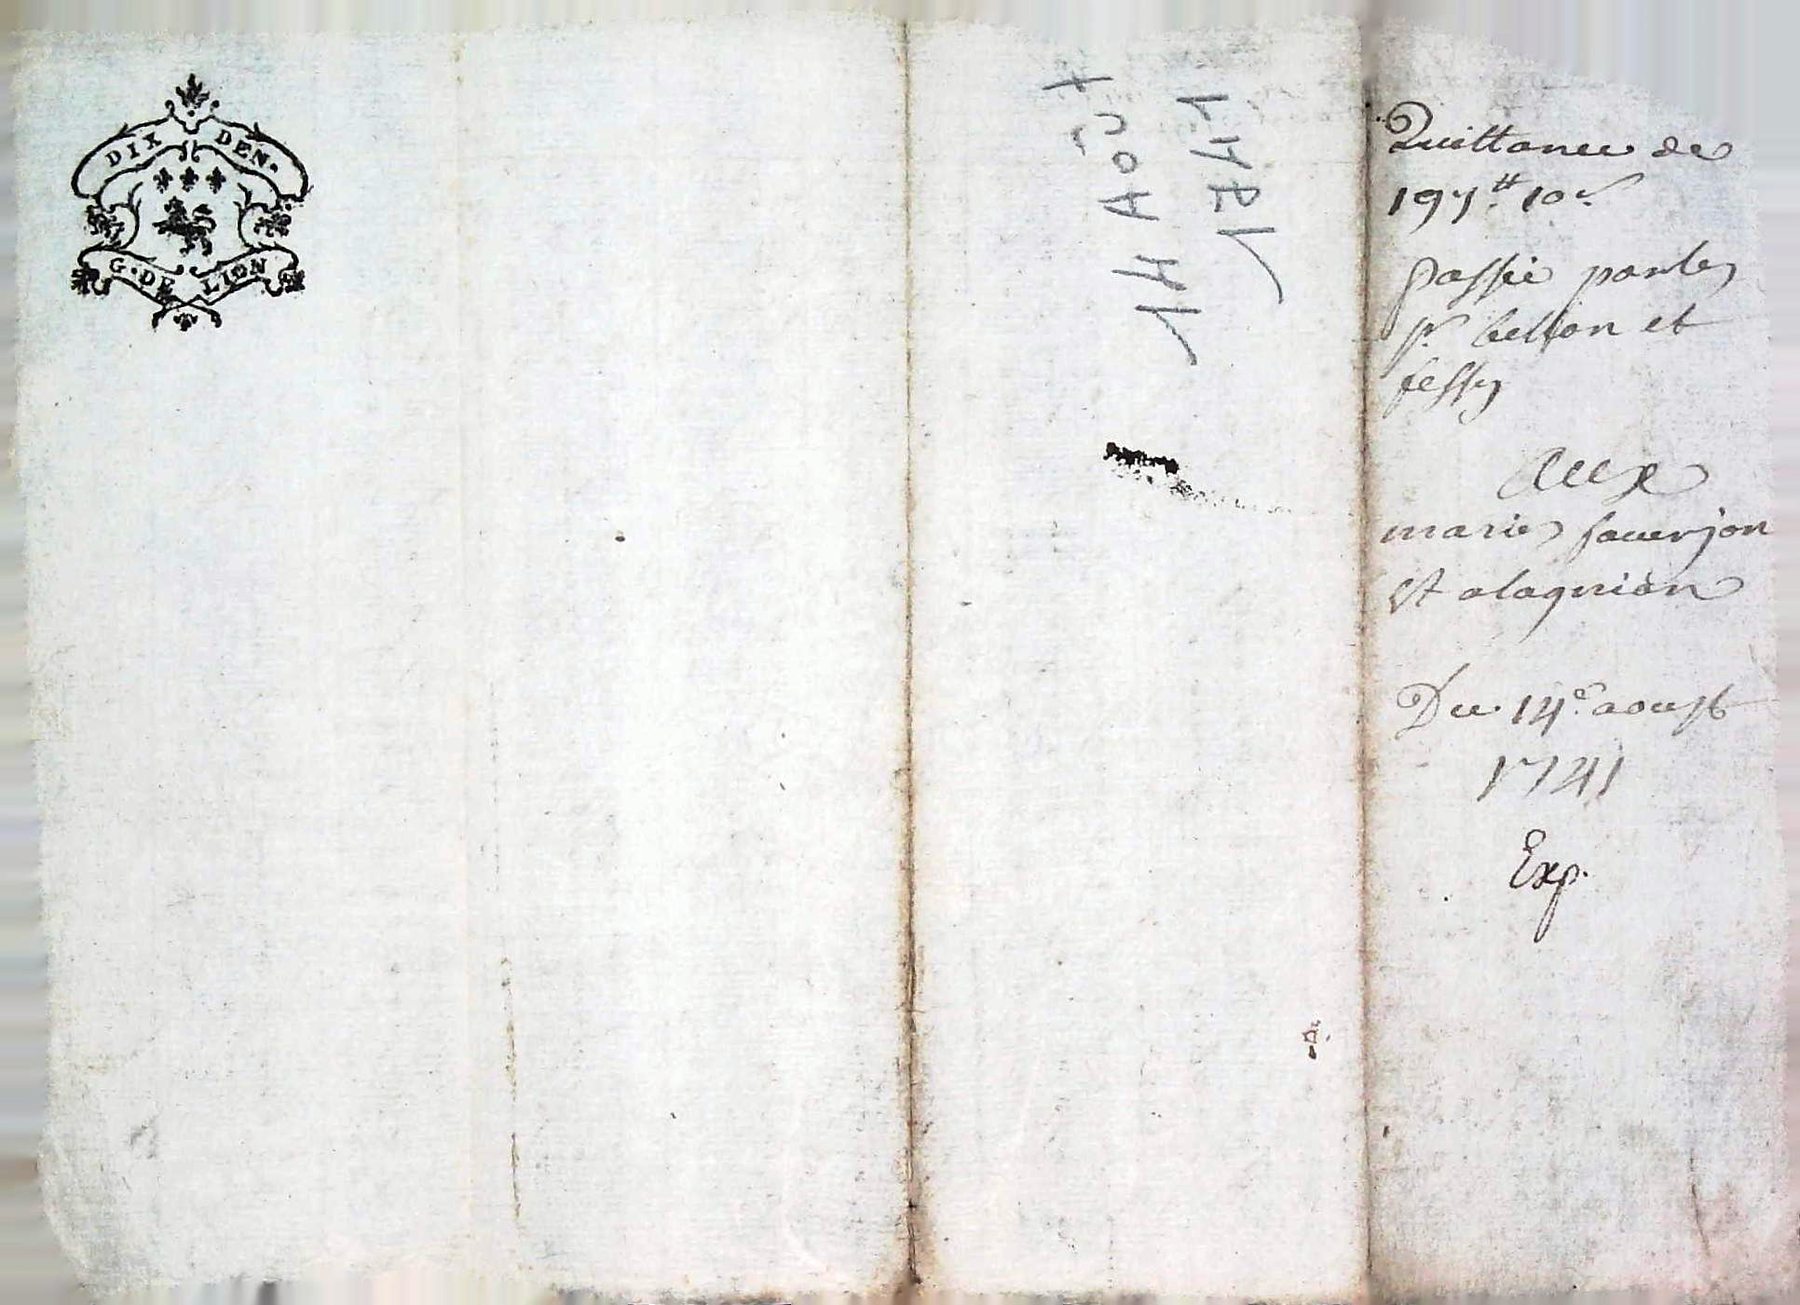 DIX DEN.
G. DE LION
14 AOÛT
1741
Quittance de
197ᵗᵗ 10ˢ
passée par les
sʳ bellon et
fessy
Aux
mariés faverjon
et alagnion
Du 14ᵉ aoust
1741
Exp.